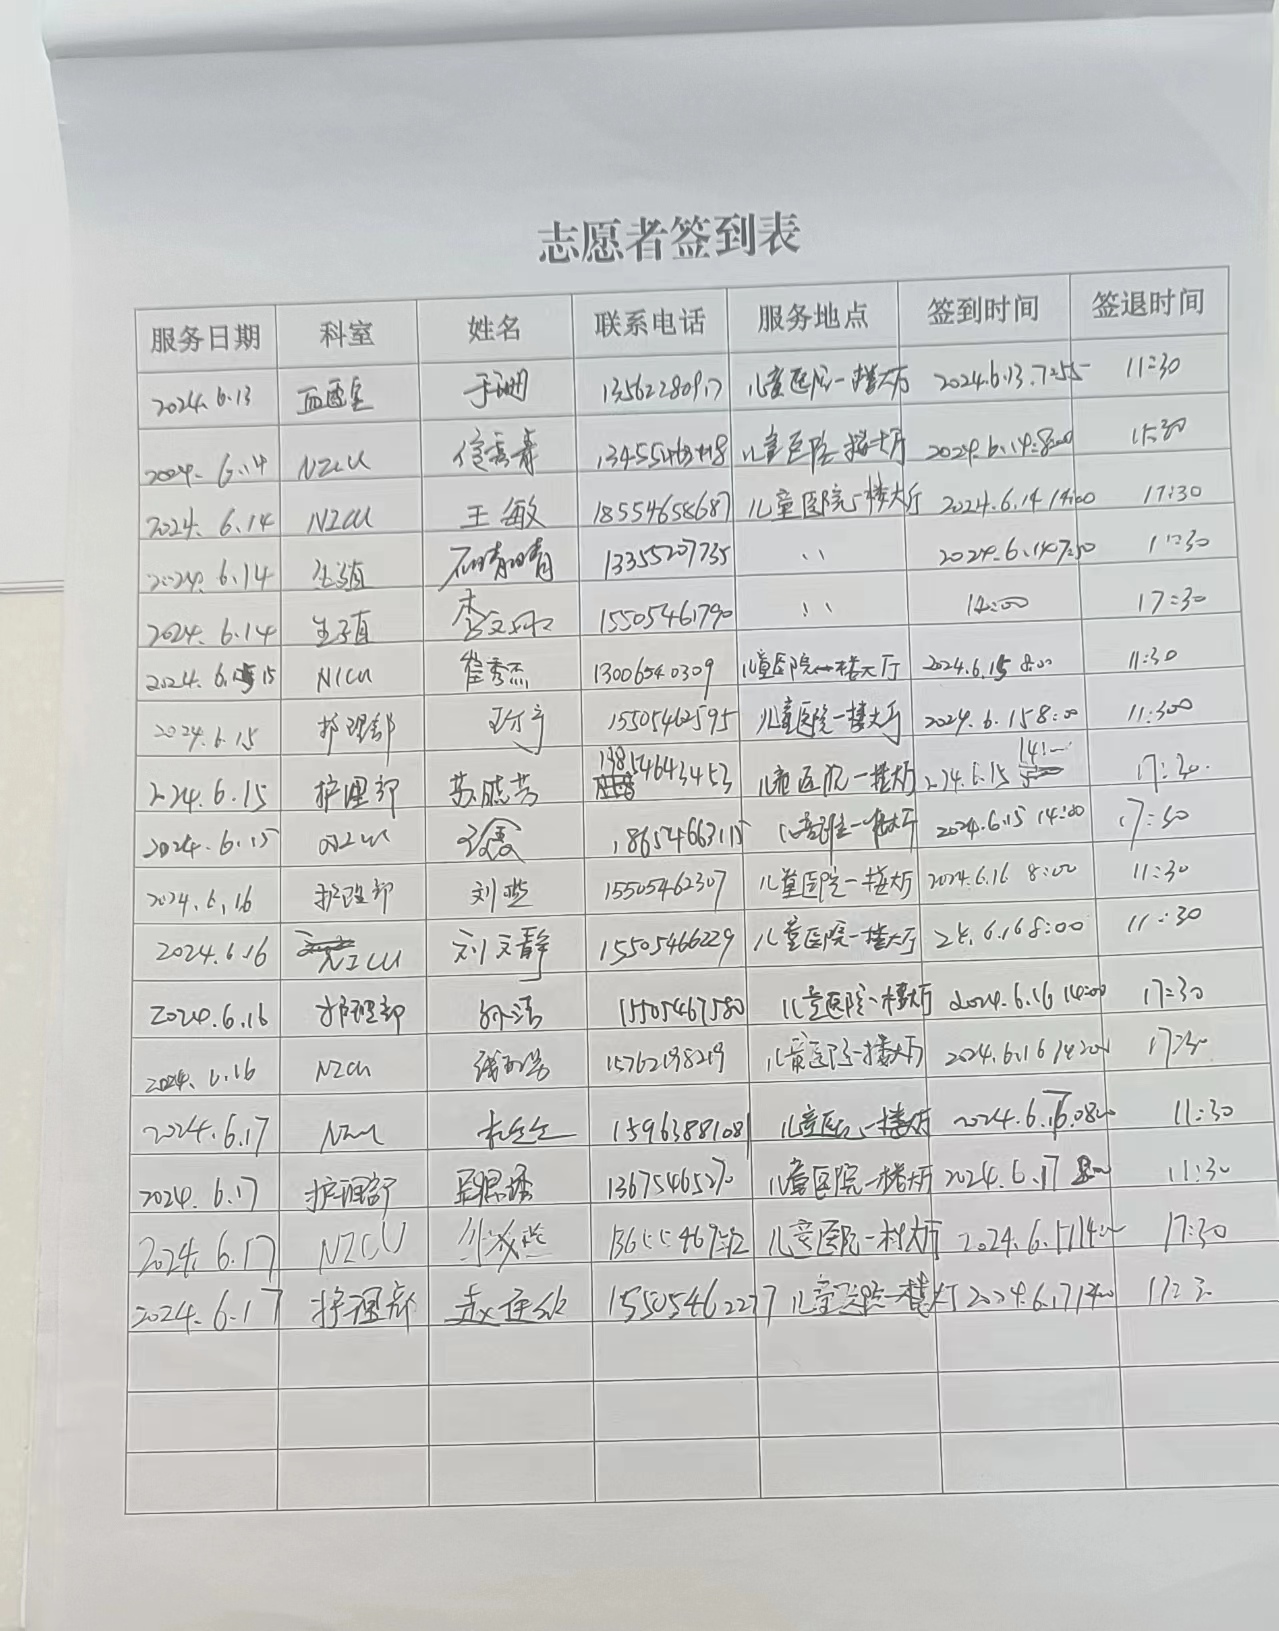 志愿者签到表
服务日期 科室 姓名 联系电话 服务地点 签到时间 签退时间
2024.6.13 儿童医院一楼大厅 2024.6.13.7:55 11:30
2024.6.14 NICU 儿童医院一楼大厅 2024.6.14.8:00 11:30
2024.6.14 NICU 王敏 18554658687 儿童医院一楼大厅 2024.6.14 14:00 17:30
2024.6.14 生殖 石晴晴 13355207735 、、 2024.6.14 7:50 11:30
2024.6.14 生殖 15505461790 、、 14:00 17:30
2024.6.15 NICU 崔秀杰 13006540309 儿童医院一楼大厅 2024.6.15 8:00 11:30
2024.6.15 护理部 15505462595 儿童医院一楼大厅 2024.6.15 8:00 11:300
2024.6.15 护理部 苏晓芳 13854643453 儿童医院一楼大厅 2024.6.15 14:00 17:30.
2024.6.15 NICU 18654663115 一楼大厅 2024.6.15 14:00 17:30
2024.6.16 护理部 15505462307 儿童医院一楼大厅 2024.6.16 8:00 11:30
2024.6.16 NICU 刘文静 15505466229 儿童医院一楼大厅 24.6.16 8:00 11:30
2024.6.16 护理部 孙洁 15505467580 儿童医院一楼大厅 2024.6.16 14:00 17:30
2024.6.16 NICU 15762198219 儿童医院一楼大厅 2024.6.16 17:30
2024.6.17 NICU 15963881081 儿童医院一楼大厅 11:30
2024.6.17 护理部 儿童医院一楼大厅 2024.6.17 11:30
2024.6.17 NICU 儿童医院一楼大厅 17:30
2024.6.17 护理部 15505462277 儿童医院一楼大厅 2024.6.17